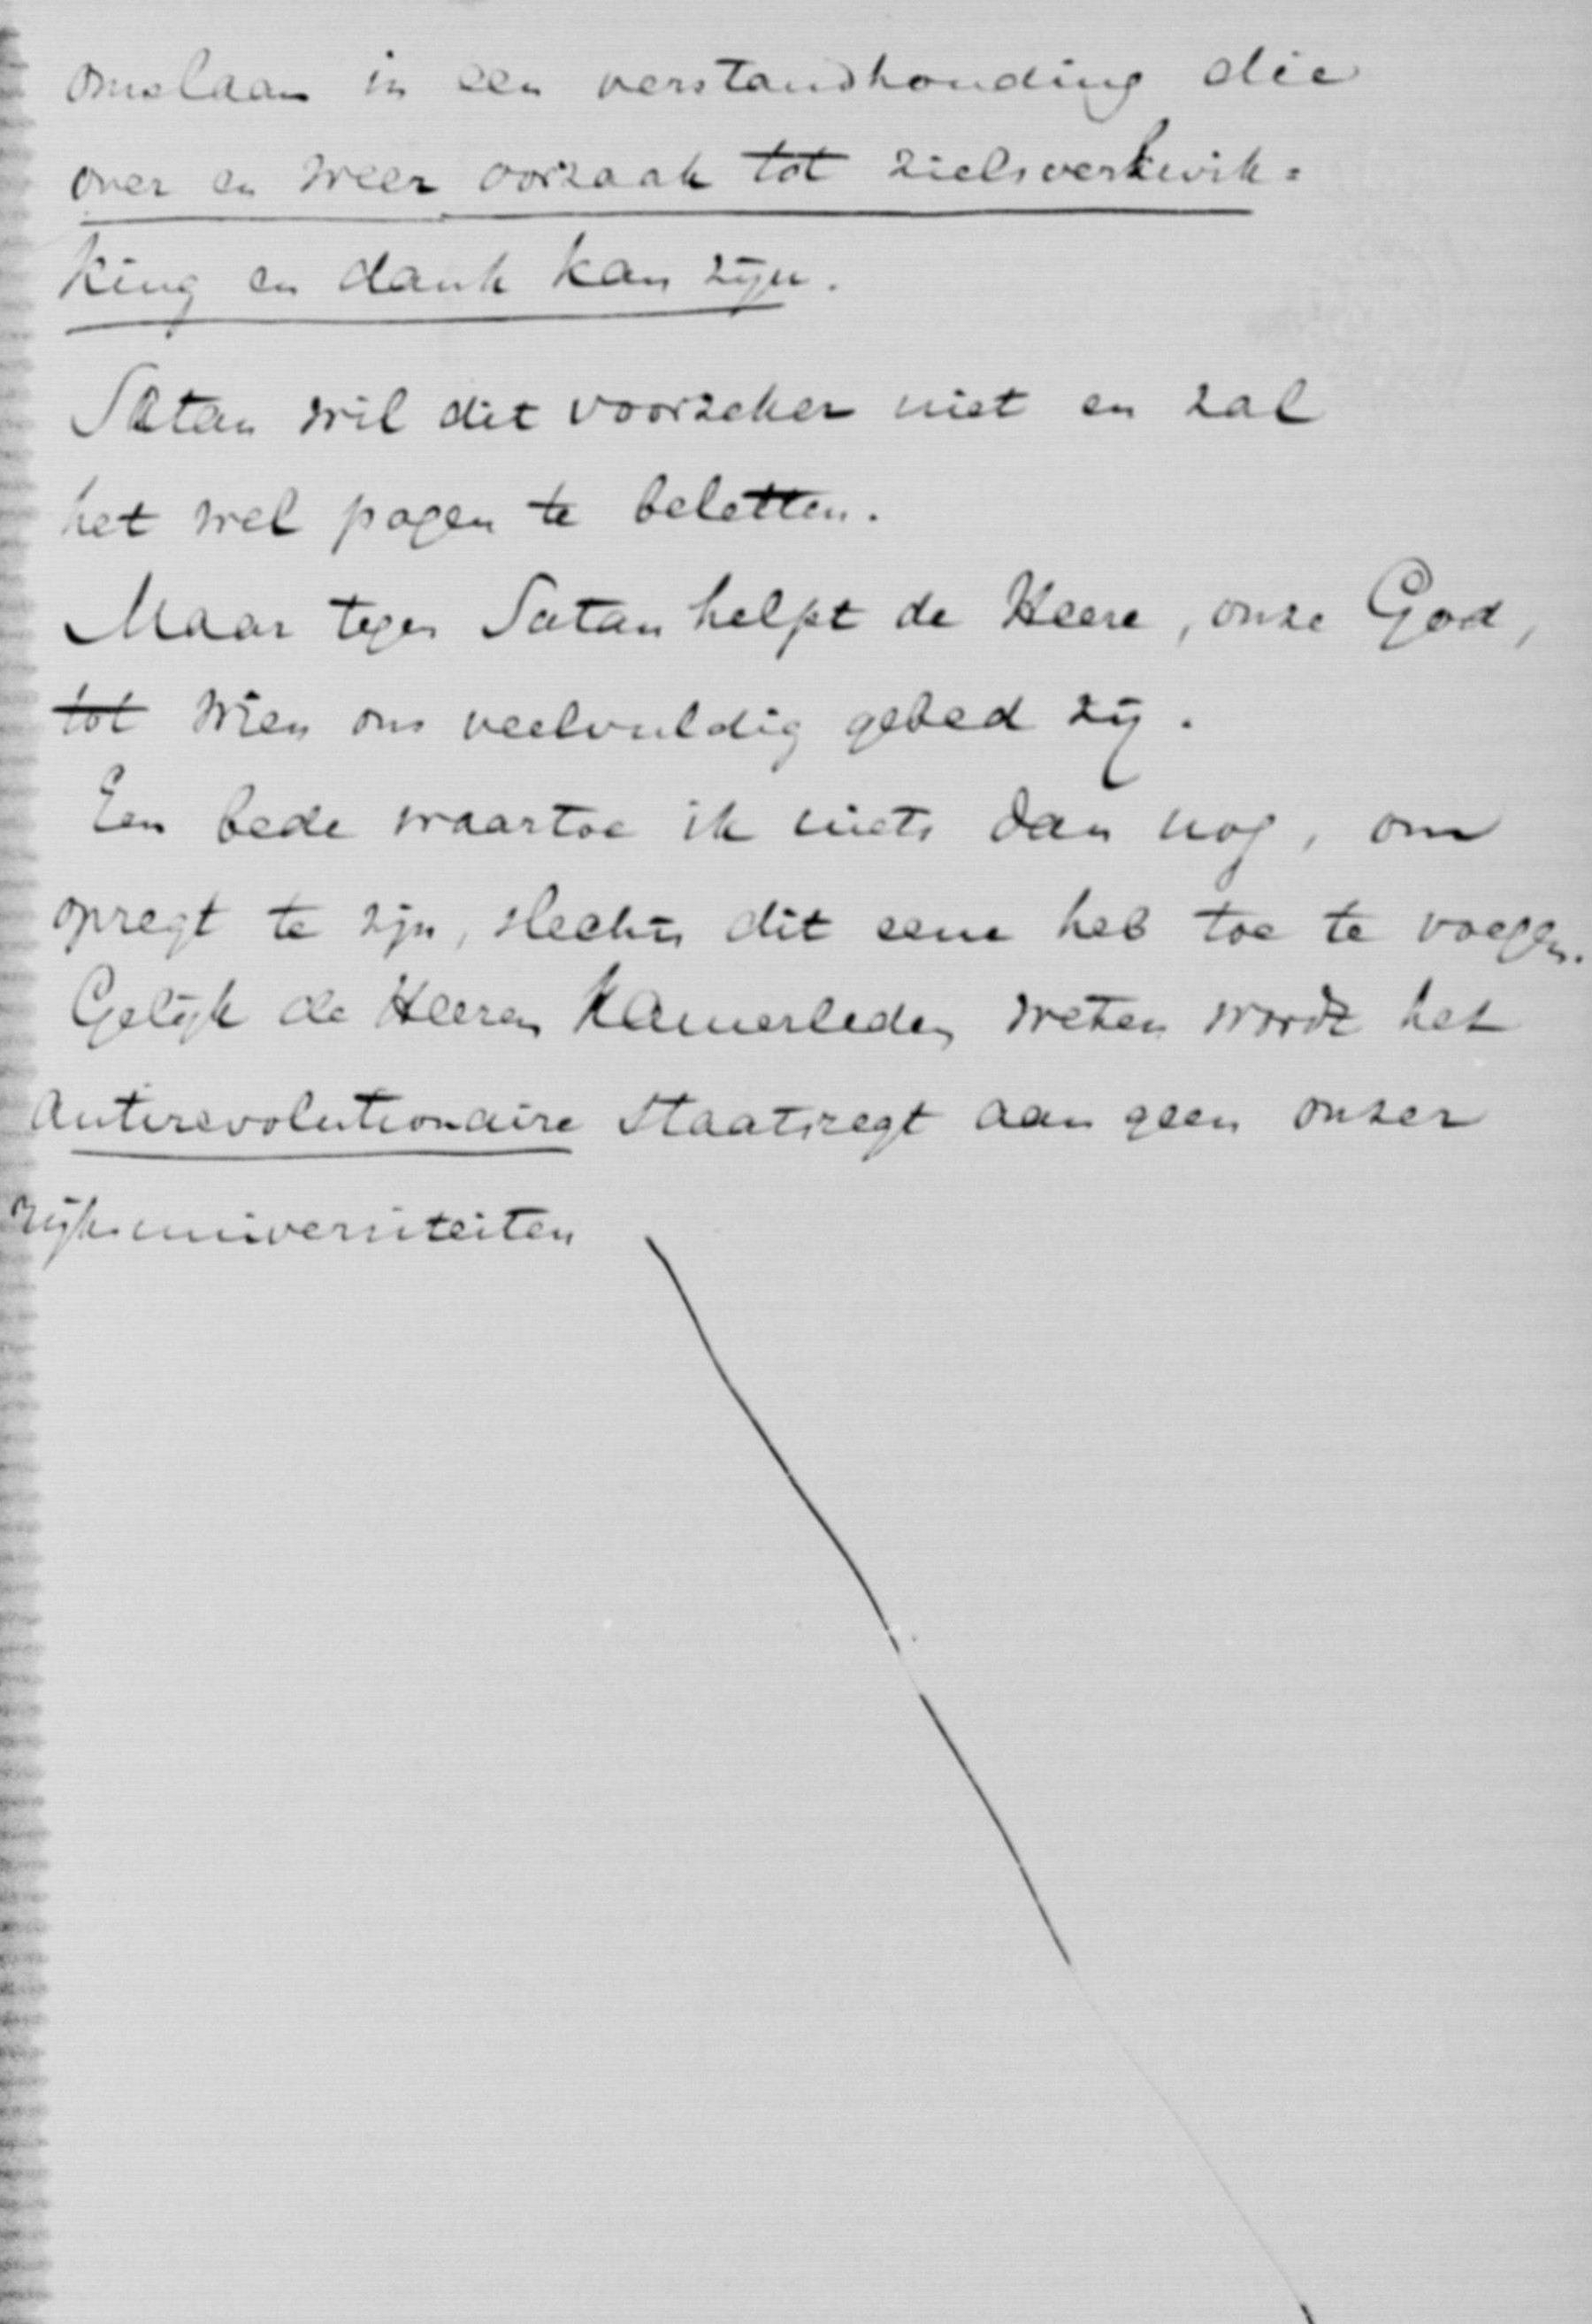 omslaan in een verstandhouding die
over en weer oorzaak tot zielsverkwik=
king en dank kan zijn.
Satan wil dit voorzeker niet en zal
het wel pogen te beletten.
Maar tegen Satan helpt de Heere, onze God,
tot Wien ons veelvuldig gebed zij.
Een bede waartoe ik niets dan nog, om
opregt te zijn, slechts dit eene heb toe te voegen.
Gelijk de Heeren Kamerleden weten wordt het
Antirevolutionaire Staatsregt aan geen onzer
rijksuniversiteiten